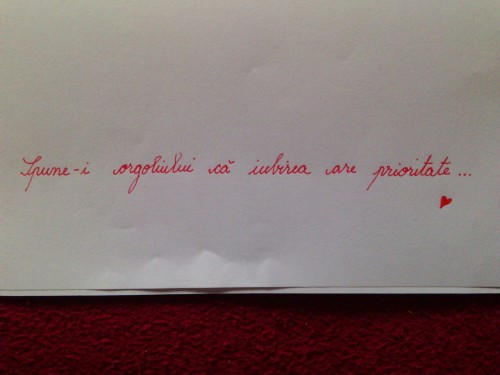 Spune-i orgoliului că iubirea are prioritate...